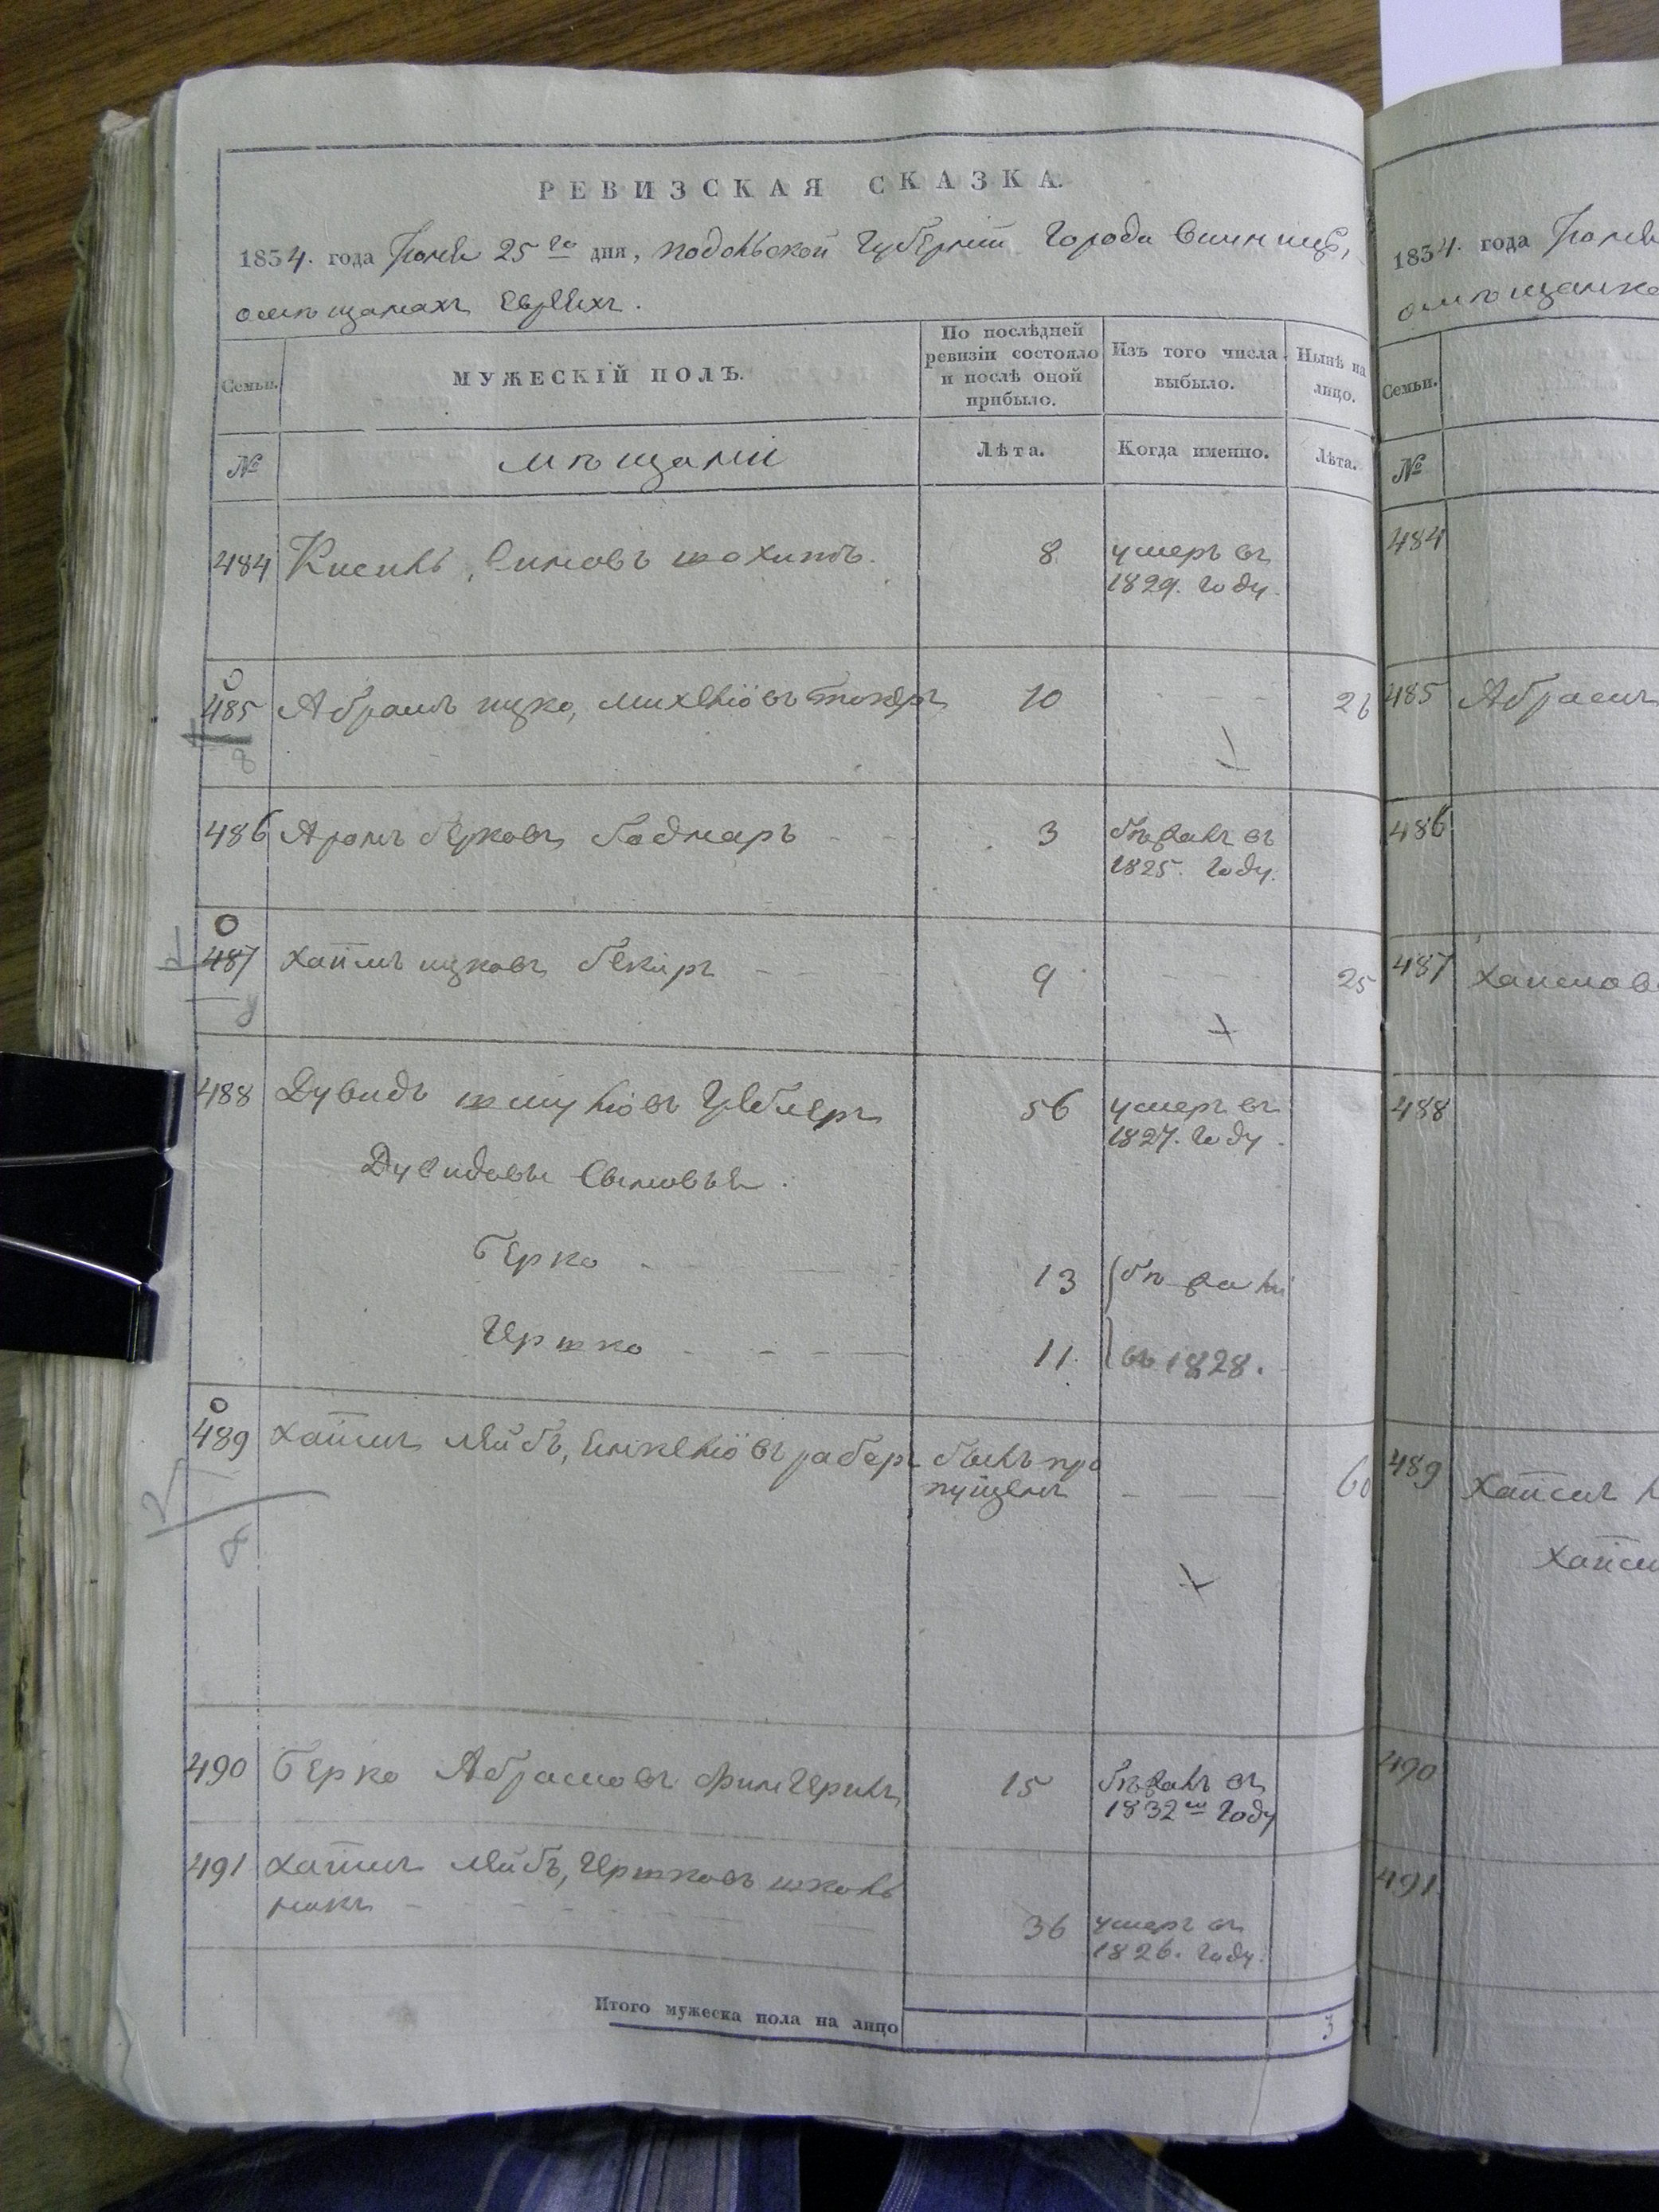 РЕВИЗСКАЯ СКАЗКА.
1834. года Июня 25го дня, Подольской Губерний Города Винницы,
омѣщанахъ Евреяхъ.
Семьи.
МУЖЕСКІЙ ПОЛЪ.
По послѣдней ревизіи состояло и послѣ оной прибыло.
Изъ того числа выбыло.
Нынѣ на лицо.
№
мѣщани
Лѣта.
Когда именно.
Лѣта.
484 Кисиль, Симовъ шохитъ. 8 умеръ въ
1829. Году.
485 Абрамъ ицко, михелiовъ токеръ 10 26
8
486 Аронъ берковъ боднаръ 3 бѣжалъ въ
1825. Году.
487 хаимъ ицковъ бекиръ 9 25
8
488 Дувидъ шмулiовъ Цеблеръ 56 умеръ въ
1827. Году.
Дувидовы Сыновья.
Берко 13 бѣжали
Гершко 11. въ 1828.
489 хаимъ лейбъ, рабера былъ про
пущенъ 60
2
8
490 Берко Абрамовъ фингерилъ 15 бѣжалъ въ
1832м Году
491 хаимъ лейбъ, Гершковъ школь
никъ 36 умеръ въ
1826. Году.
Итого мужеска пола на лицо 3
1834. года Июня
омѣщанка
Семьи.
№
484
485 Абрамъ
486
487 хаимова
488
489 хаимъ
хаим
490
491